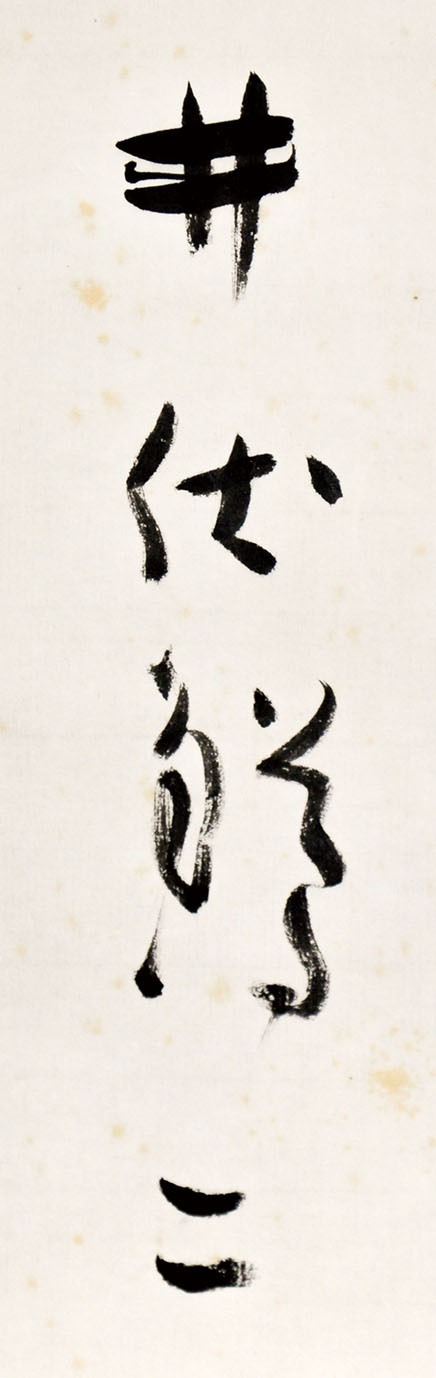 井伏鱒二